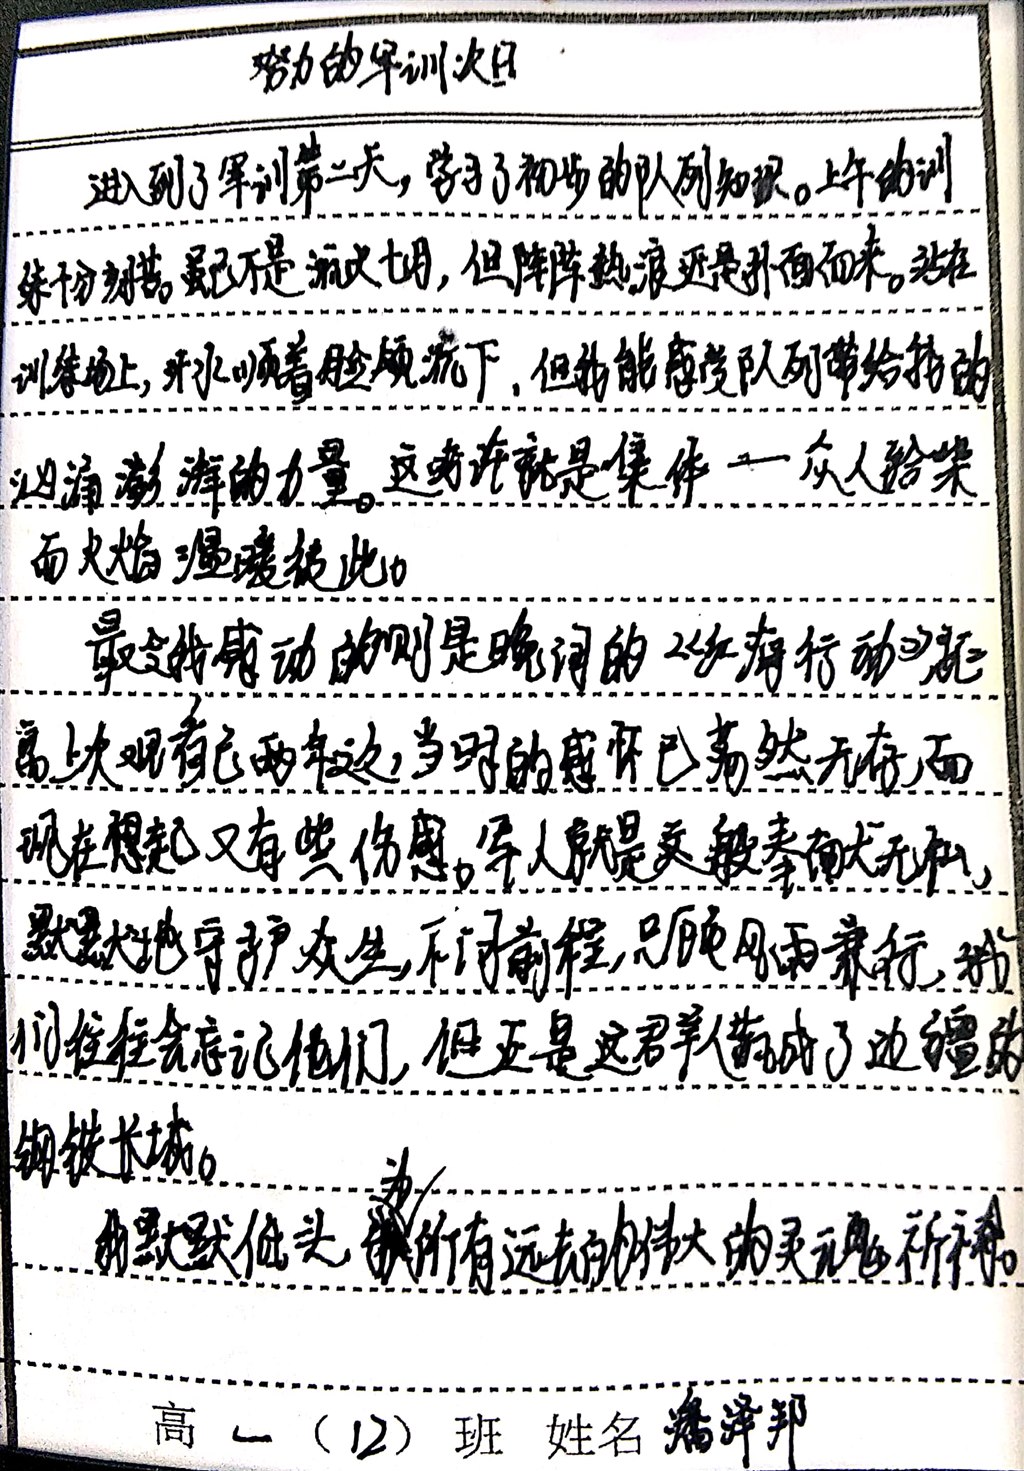 努力的军训次日
进入到了军训第二天，学习了初步的队列知识。上午的训
练十分刻苦。虽已不是流火七月，但阵阵热浪还是扑面而来。站在
训练场上，汗水顺着脸颊流下，但我能感受队列带给我的
汹涌澎湃的力量。这或许就是集体——众人拾柴
而火焰温暖彼此。
最令我感动的则是晚间的《红海行动》，距
离上次观看已两年之久，当时的感怀已荡然无存，而
现在想起又有些伤感。军人就是这般奉献无私，
默默地守护众生，不问前程，只顾风雨兼行，我
们往往会忘记他们，但正是这群人筑成了边疆的
钢铁长城。
我默默低头，为所有远去的伟大的灵魂祈祷。
高一（12）班 姓名 潘泽邦